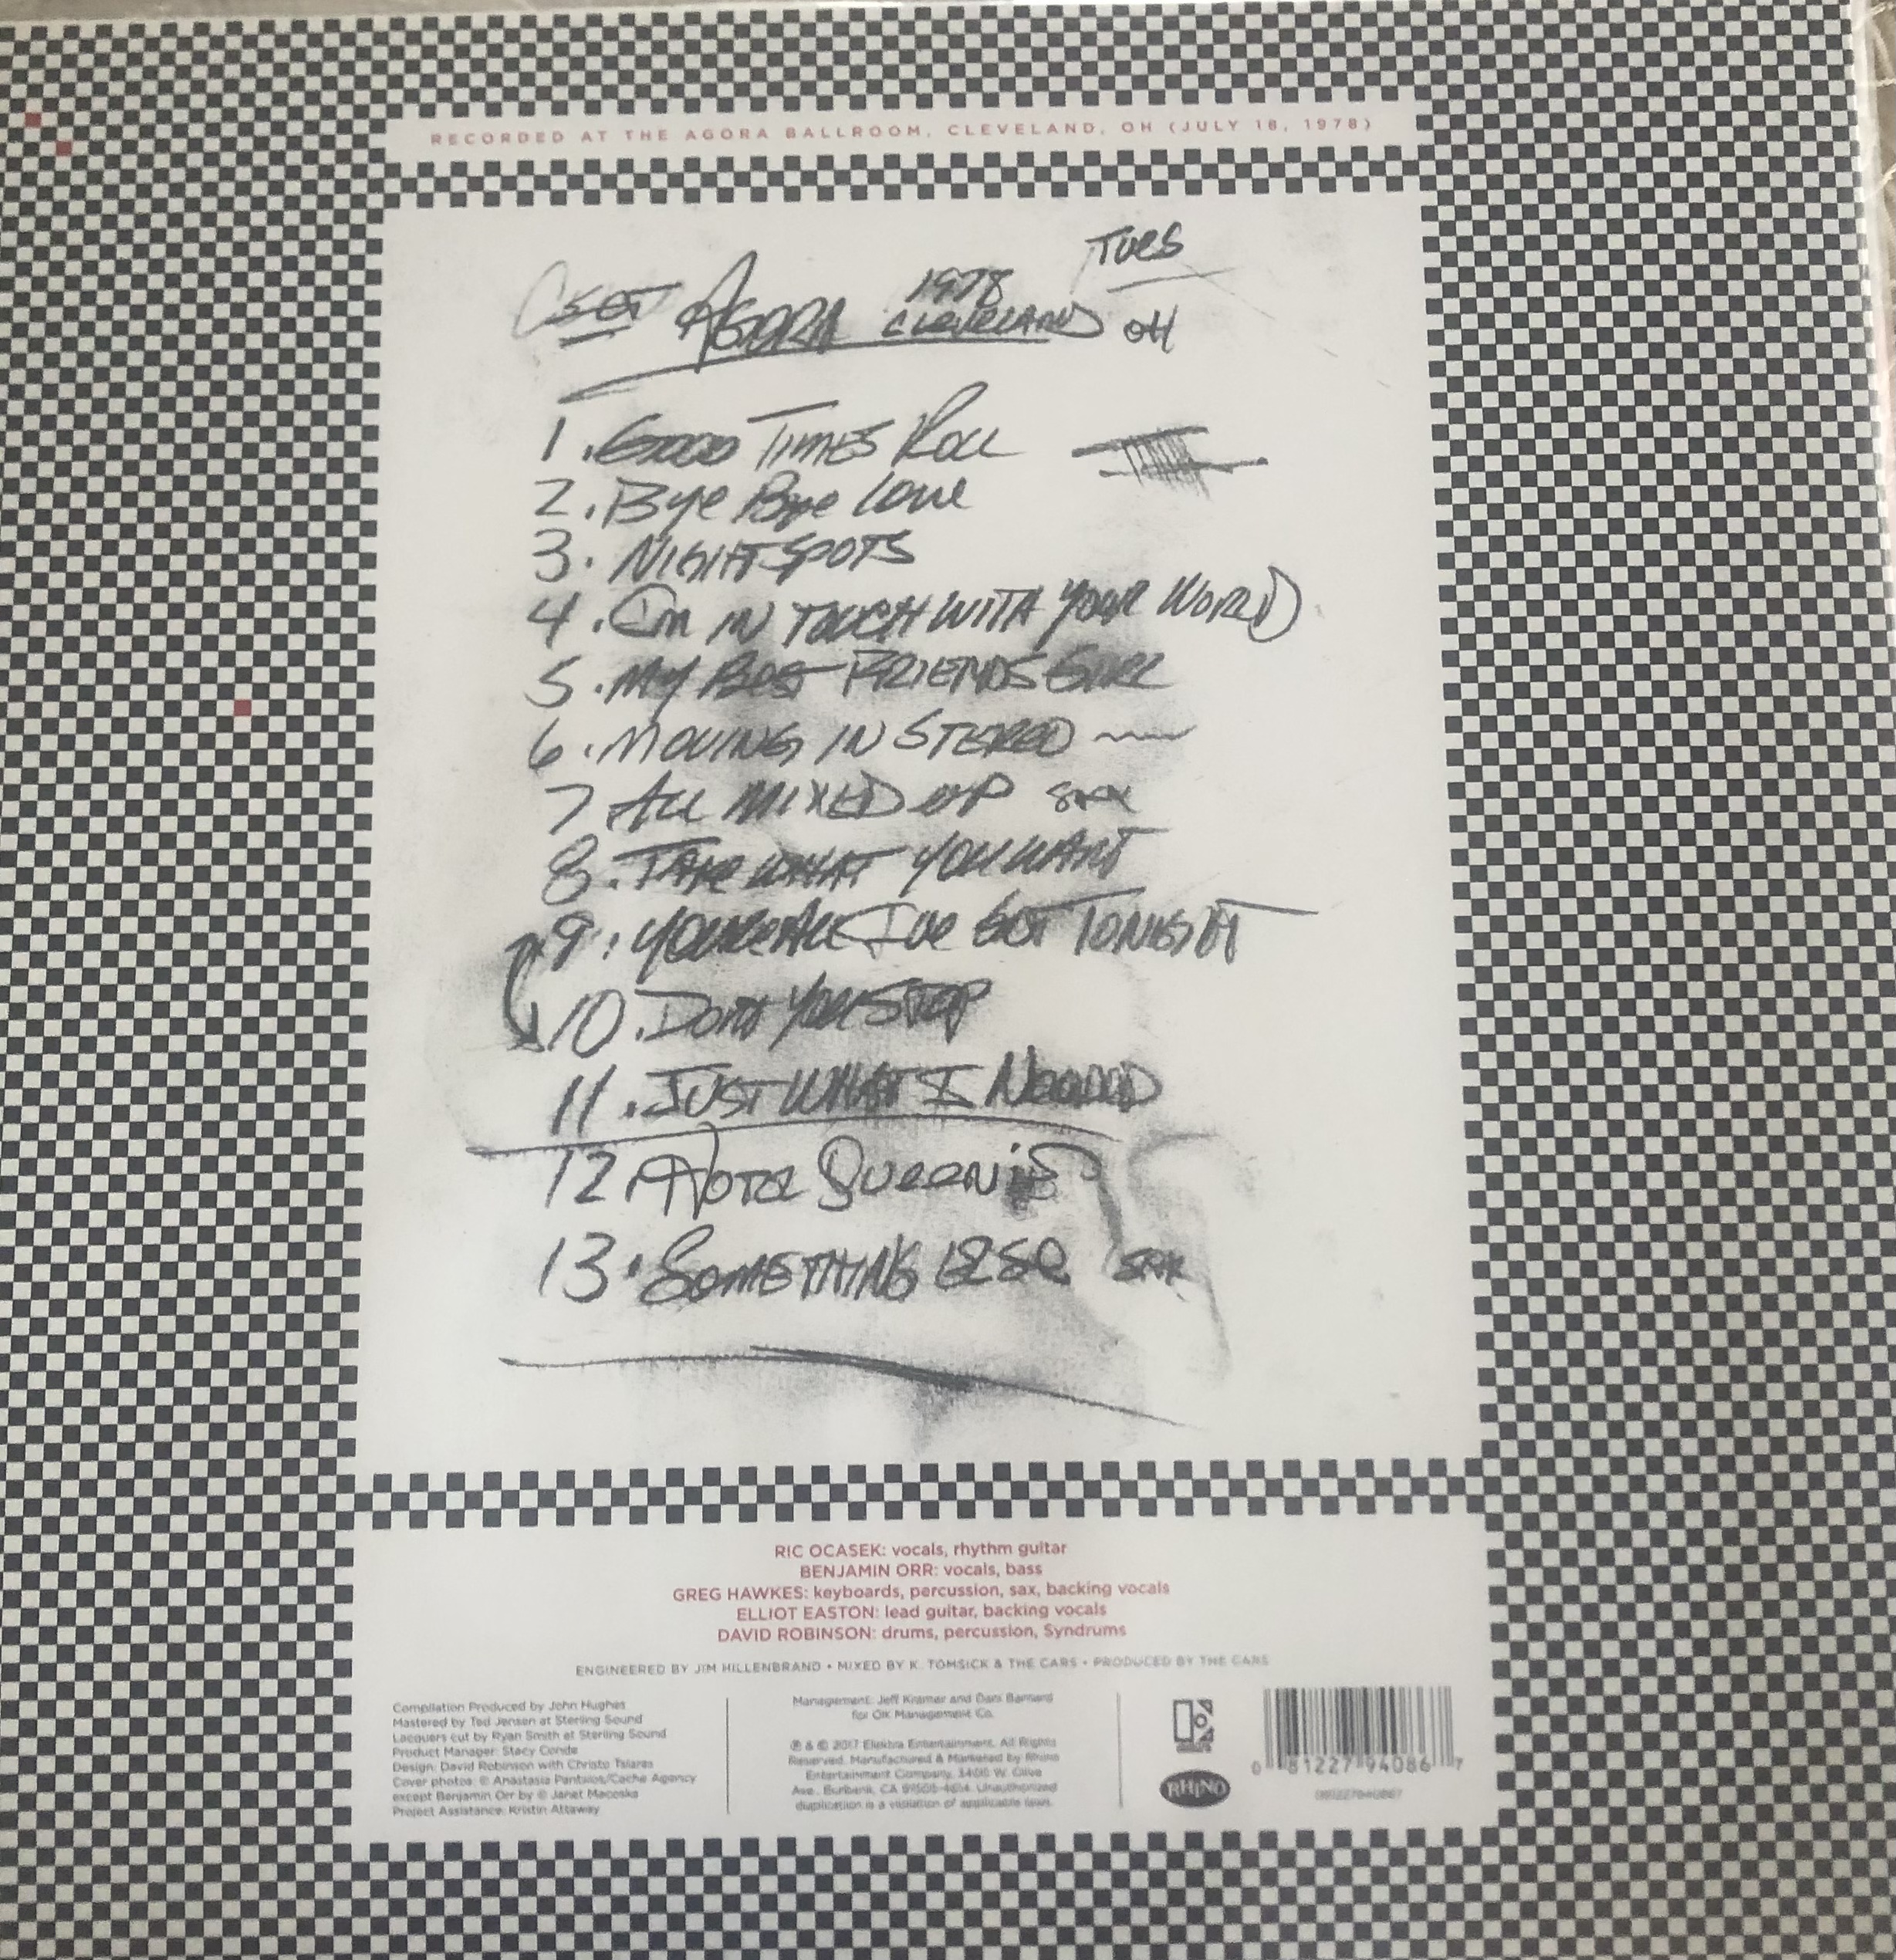 RECORDED AT THE AGORA BALLROOM, CLEVELAND, OH (JULY 18, 1978)
TUES
SET AGORA 1978 CLEVELAND OH
1. GOOD TIMES ROLL
2. Bye Bye Love
3. NIGHT SPOTS
4. I'm IN TOUCH WITH YOUR WORLD
5. MY BEST FRIENDS GIRL
6. MOVING IN STEREO
7 ALL MIXED UP SAX
8. TAKE WHAT YOU WANT
9. YOU'RE ALL I'VE GOT TONIGHT
10. DONT YOU STOP
11. JUST WHAT I NEEDED
12 HOTEL QUEENIE
13. SOMETHING ELSE SAX
RIC OCASEK: vocals, rhythm guitar
BENJAMIN ORR: vocals, bass
GREG HAWKES: keyboards, percussion, sax, backing vocals
ELLIOT EASTON: lead guitar, backing vocals
DAVID ROBINSON: drums, percussion, Syndrums
ENGINEERED BY JIM HILLENBRAND • MIXED BY K. TOMSICK & THE CARS • PRODUCED BY THE CARS
Compilation Produced by John Hughes
Mastered by Ted Jensen at Sterling Sound
Lacquers cut by Ryan Smith at Sterling Sound
Product Manager: Stacy Conde
Design: David Robinson with Christo Tsiaras
Cover photos: © Anastasia Pantsios/Cache Agency
except Benjamin Orr by © Janet Macoska
Project Assistance: Kristin Attaway
Management: Jeff Kramer and Dani Barnard
for OK Management Co.
℗ & © 2017 Elektra Entertainment. All Rights
Reserved. Manufactured & Marketed by Rhino
Entertainment Company, 3400 W. Olive
Ave., Burbank, CA 91505-4614. Unauthorized
duplication is a violation of applicable laws.
RHINO
0 81227 94086 7